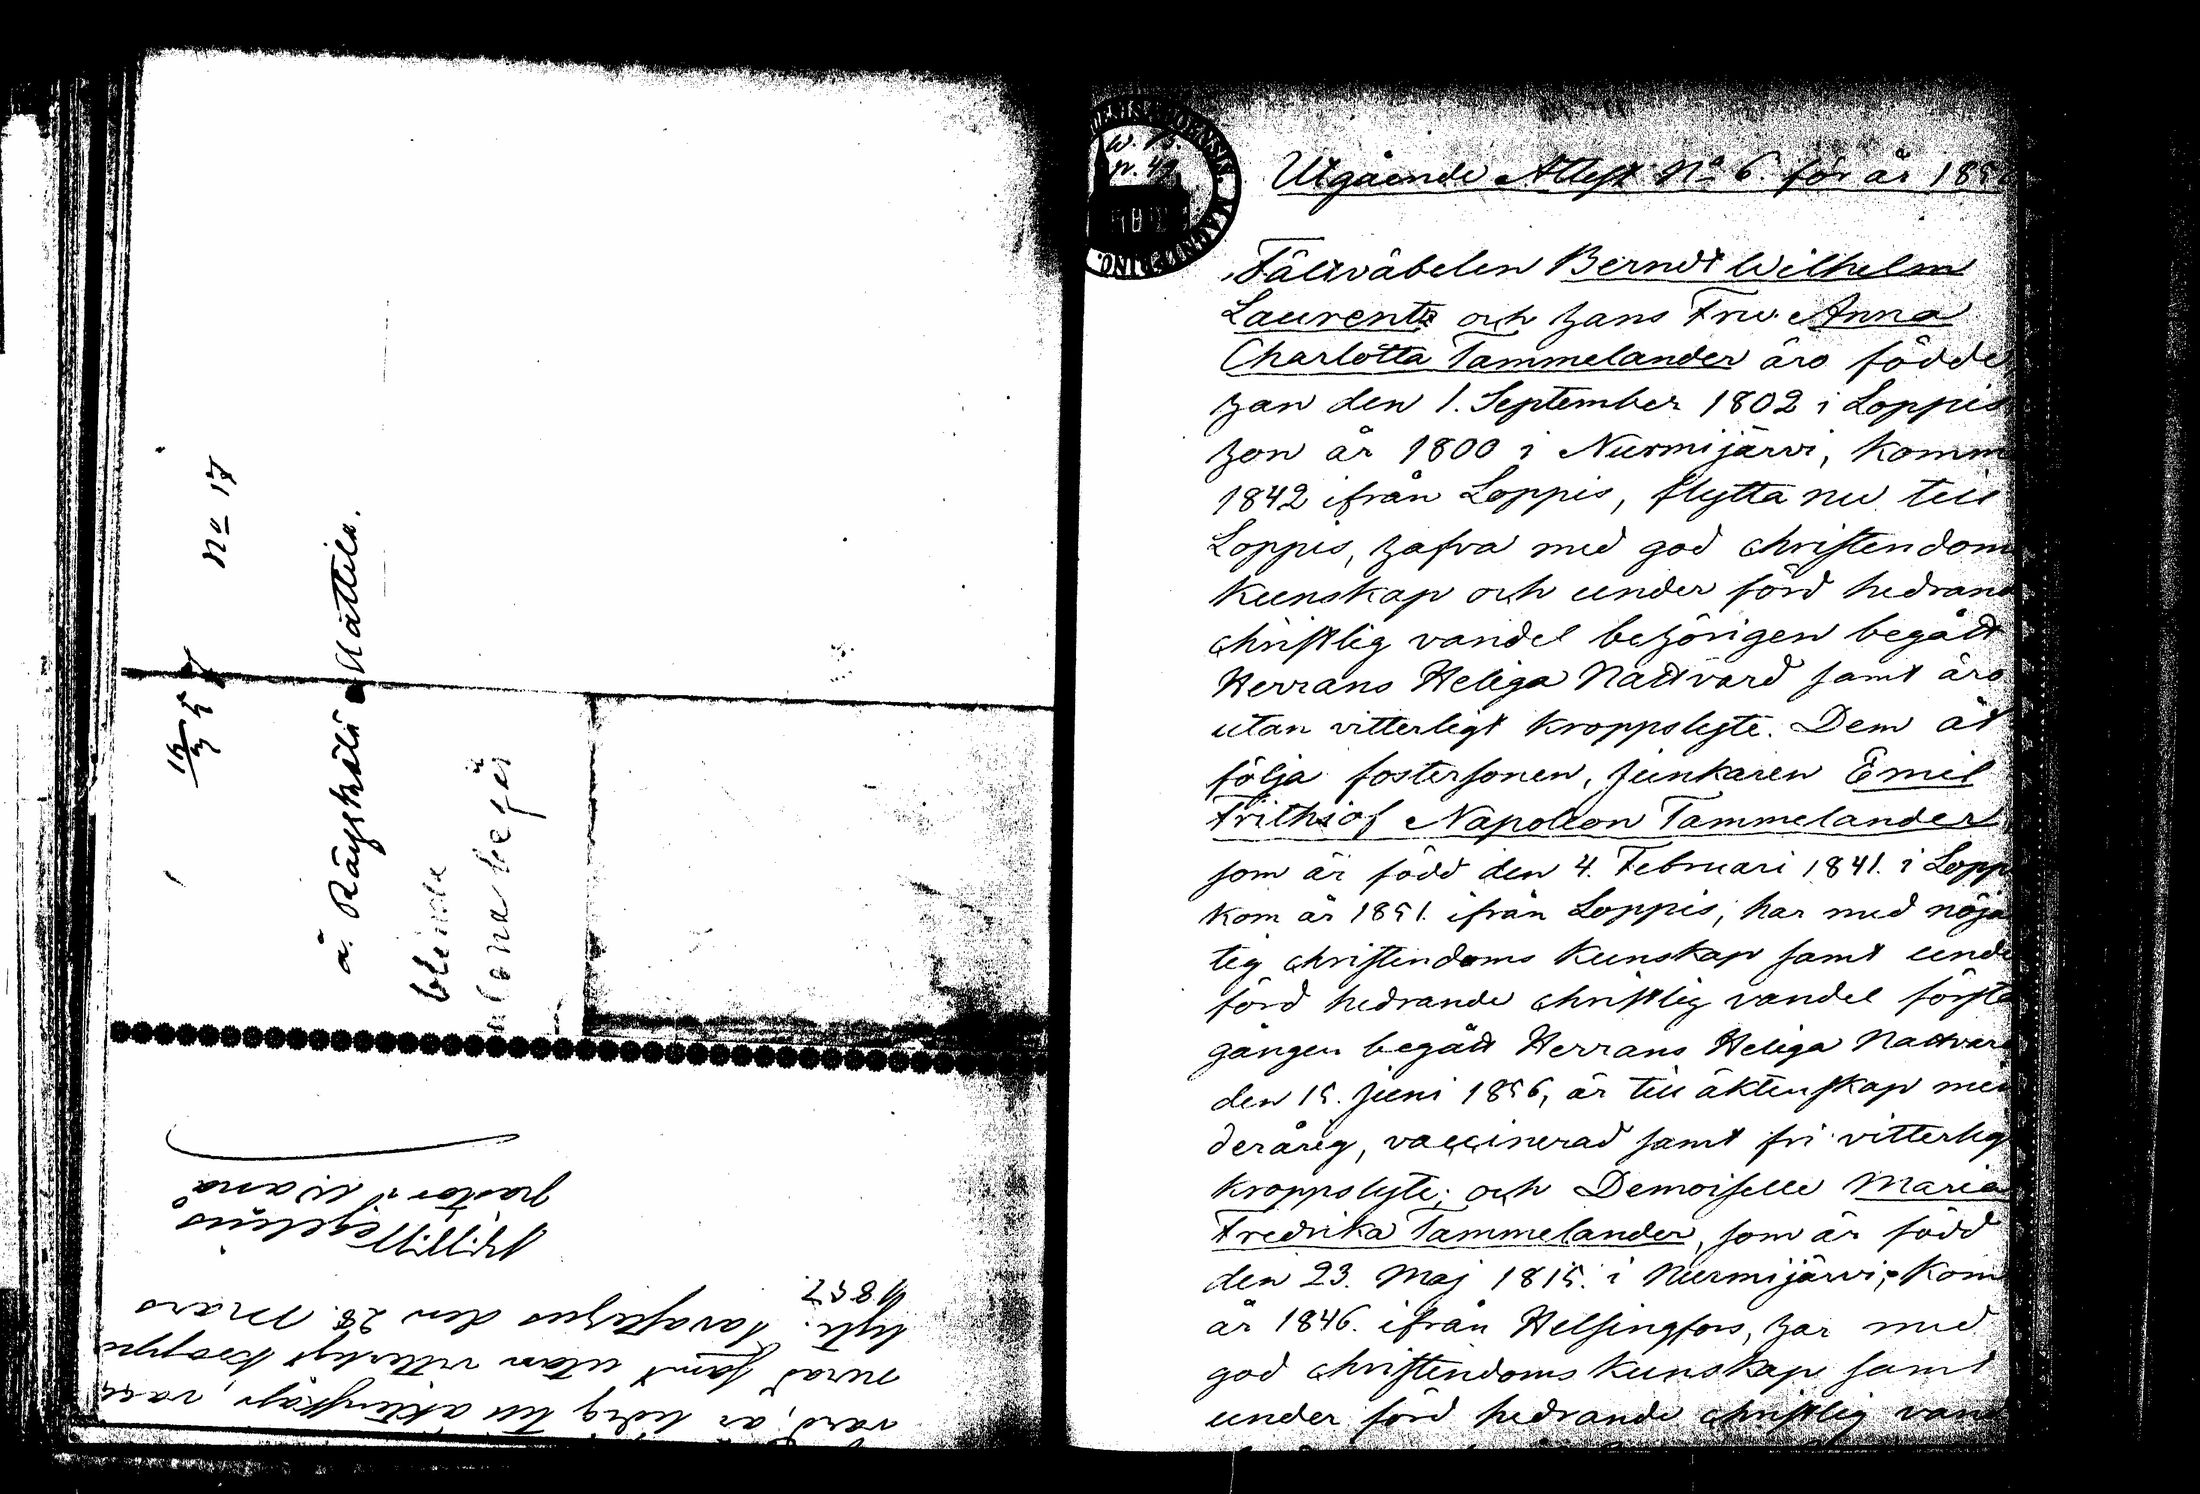 No 17
15/3 57
å. Räyskälä Mattila.
värd, är ledig till äktenskap, vacci
nerad samt utan vitterligt kropps
lyte. Tavastehus den 28. Mars
1857.
pastor i Wånå
w. 15.
p. 49
Utgående Attest No 6. för år 185
Fältväbelen Berndt Wilhelm
Laurentz och hans Fru Anna
Charlotta Tammelander äro födde
han den 1. September 1802 i Loppis
hon år 1800 i Nurmijärvi, komm
1842 ifrån Loppis, flytta nu till
Loppis, hafva med god christendom
kunskap och under förd hedrand
christlig vandel behörigen begått
Herrans Heliga Nattvard samt äro
utan vitterligt kroppslyte. Dem åt
följa fostersonen, Junkaren Emil
Frithiof Napoleon Tammelander
som är född den 4. Februari 1841. i Lopp
kom år 1851. ifrån Loppis, har med nöja
tig christendoms kunskap samt unde
förd hedrande christlig vandel första
gången begått Herrans Heliga Nattvard
den 15. Juni 1856, är till äktenskap min
derårig, vaccinerad samt fri vitterlig
kroppslyte; och Demoiselle Maria
Fredrika Tammelander, som är född
den 23. Maj 1815. i Nurmijärvi, kom
år 1846. ifrån Helsingfors, har med
god christendoms kunskap samt
under förd hedrande christlig vand